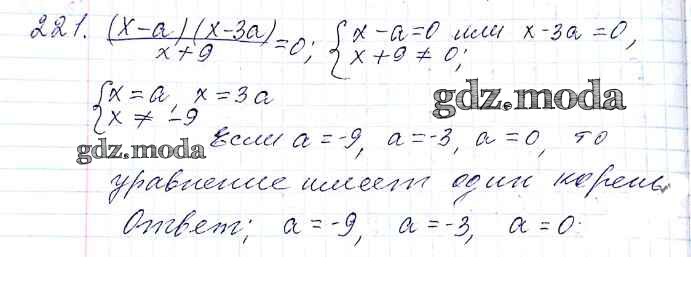 221. (x-a)(x-3a)/x+9 = 0; { x-a=0 или x-3a=0,
x+9 ≠ 0;
{ x=a, x=3a
x ≠ -9
gdz.moda
Если a=-9, a=-3, a=0, то
gdz.moda
уравнение имеет один корень
Ответ; a=-9, a=-3, a=0.